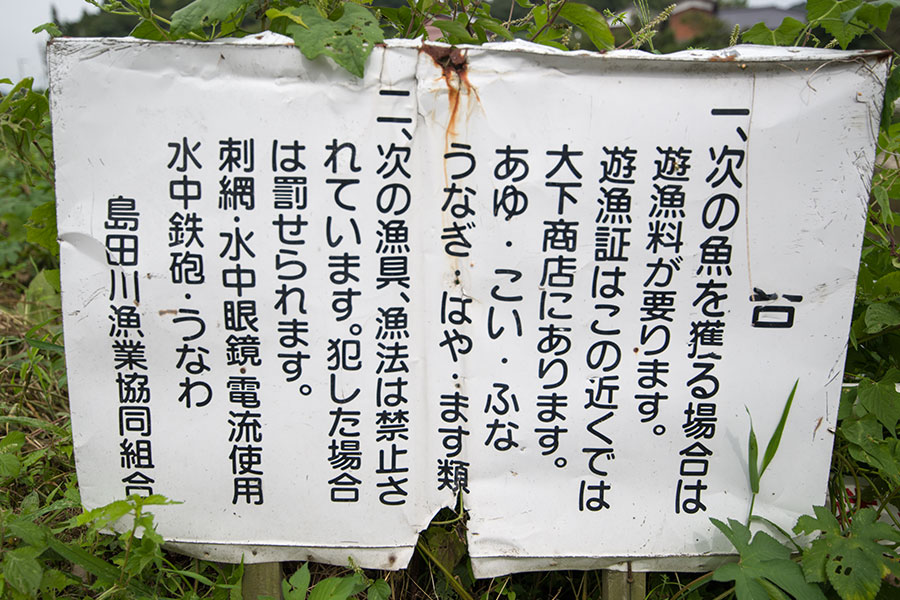 一、次の魚を獲る場合は
遊漁料が要ります。
遊漁証はこの近くでは
大下商店にあります。
あゆ・こい・ふな
うなぎ・はや・ます類
二、次の漁具、漁法は禁止さ
れています。犯した場合
は罰せられます。
刺網・水中眼鏡・電流使用
水中鉄砲・うなわ
島田川漁業協同組合